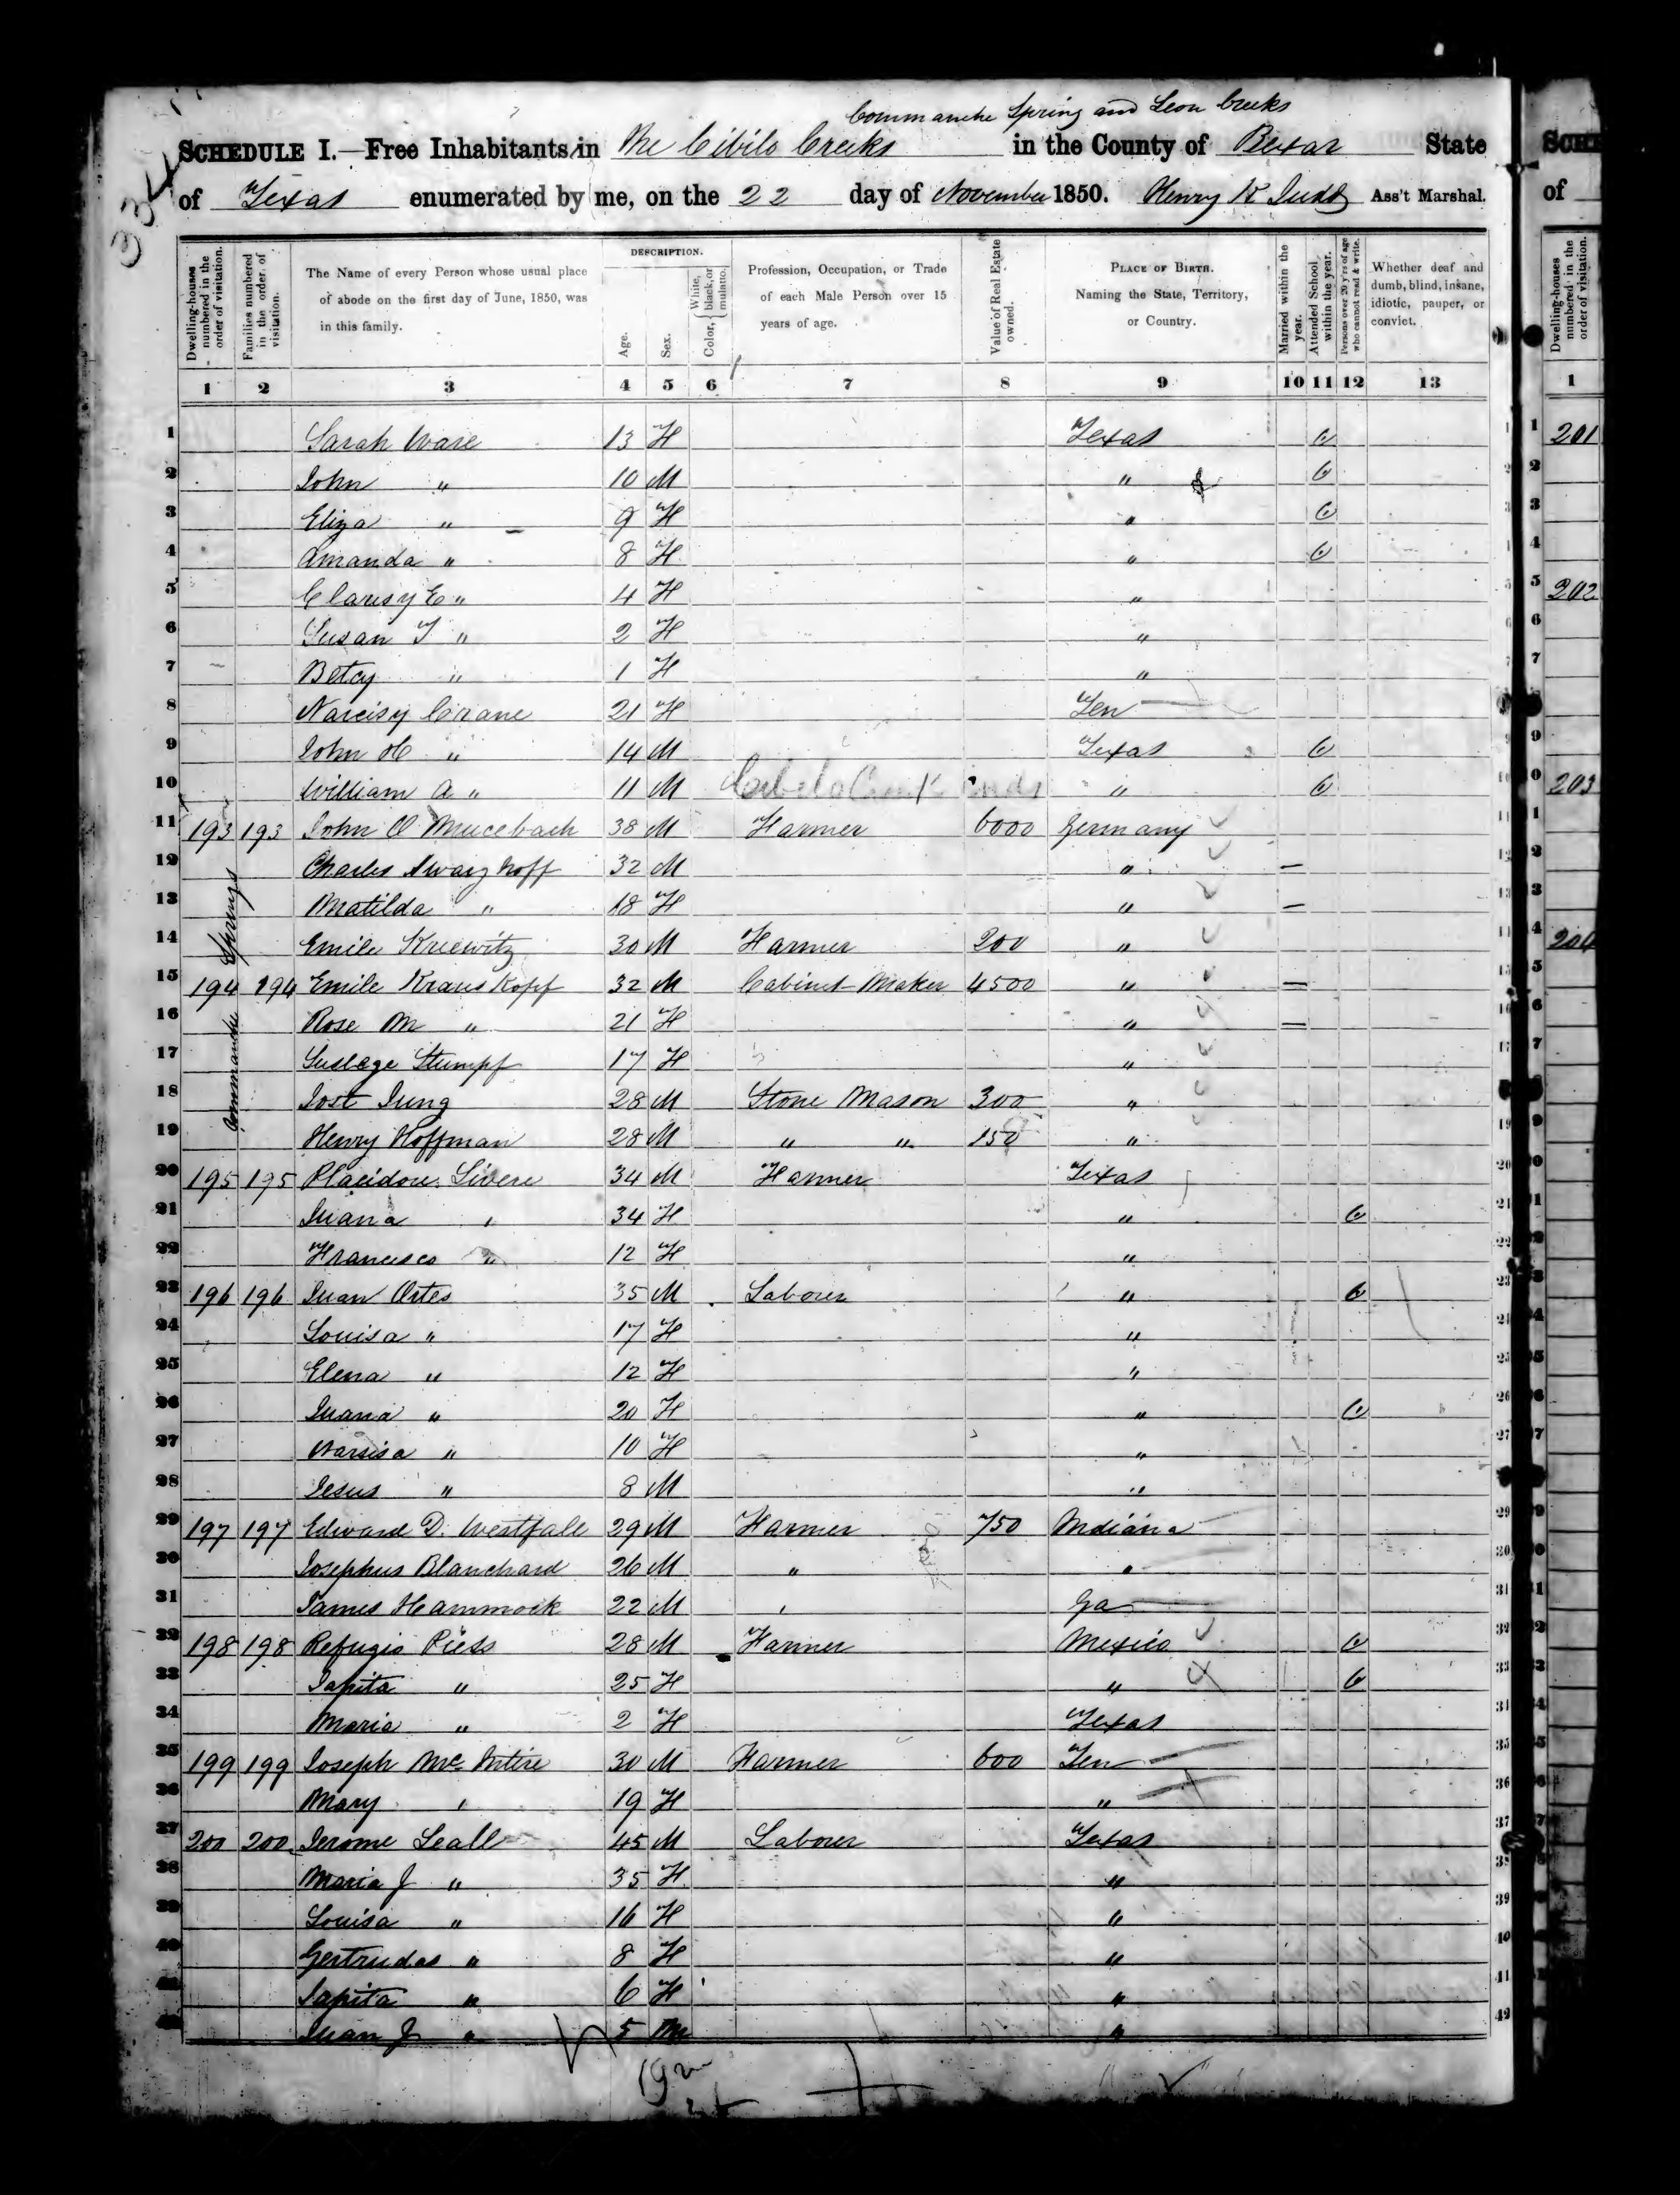 Commanche Spring and Leon Creeks
SCHEDULE I.—Free Inhabitants in The Cibilo Creeks in the County of Bexar State
of Texas enumerated by me, on the 22 day of November 1850. Henry K Judd Ass't Marshal.
Dwelling-houses numbered in the order of visitation.
Families numbered in the order of visitation.
The Name of every Person whose usual place of abode on the first day of June, 1850, was in this family.
DESCRIPTION.
Age.
Sex.
Color, { White, black, or mulatto.
Profession, Occupation, or Trade of each Male Person over 15 years of age.
Value of Real Estate owned.
PLACE OF BIRTH. Naming the State, Territory, or Country.
Married within the year.
Attended School within the year.
Persons over 20 y'rs of age who cannot read & write.
Whether deaf and dumb, blind, insane, idiotic, pauper, or convict.
1 2 3 4 5 6 7 8 9 10 11 12 13
1 Sarah Ware 13 F Texas
2 John " 10 M "
3 Eliza " 9 F "
4 Amanda " 8 F "
5 Clarisy E " 4 F "
6 Susan T " 2 F "
7 Betcy " 1 F "
8 Narcisy Crane 21 F Ten
9 John H " 14 M Texas
10 William A " 11 M Cibelo Creek ends "
11 193 193 John O Meucebach 38 M Farmer 6000 Germany
12 Charles Swarzhoff 32 M " —
13 Matilda " 18 F " —
14 Emile Kriewitz 30 M Farmer 200 "
Commanche Springs
15 194 194 Emile Krauskopf 32 M Cabinet Maker 4500 " —
16 Rose M " 21 F " —
17 Stumpf 17 F "
18 Jost Jung 28 M Stone Mason 300 "
19 Henry Hoffman 28 M " " 150 "
20 195 195 Placidou Livere 34 M Farmer Texas
21 Juana " 34 F "
22 Francisco " 12 F "
23 196 196 Juan Ortes 35 M Laborer "
24 Louisa " 17 F "
25 Elena " 12 F "
26 Juana " 20 F "
27 Narsisa " 10 F "
28 Jesus " 8 M "
29 197 197 Edward D. Westfall 29 M Farmer 750 Indiana
30 Josephus Blanchard 26 M " "
31 James Hammock 22 M " Ga
32 198 198 Refugio Riess 28 M Farmer Mexico
33 Japita " 25 F "
34 Maria " 2 F Texas
35 199 199 Joseph Mc Intire 30 M Farmer 600 Ten
36 Mary " 19 F "
37 200 200 Jerome Leall 45 M Laborer Texas
38 Maria J " 35 F "
39 Louisa " 16 F "
40 Gertrudas " 8 F "
41 Japita " 6 F "
42 Juan J " 5 M "